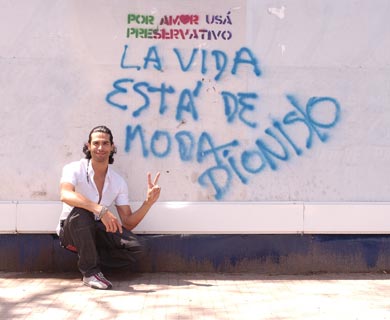 POR AMOR USÁ
PRESERVATIVO
LA VIDA
ESTÁ DE
MODA DIONISIO